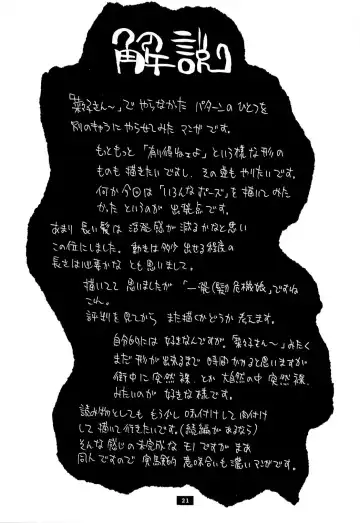 解説
「葉子さん〜」で やらなかた パターンの ひとつを
別のきゃうに やらせてみた マンガです。
もともっと 「有り得ねェよ」 という様な形の
ものも 描きたいですし、その辺も やりたいです。
何か今回は 「いろんなポーズ」を 描いてみた
かった というのが 出発点です。
あまり 長い髪は 活発感が 減るかなと思い
この位にしました。 動きは多少 出せる程度の
長さは必要かな とも 思いまして。
描いてて 思いましたが 「一発(髪)危機娘」ですね
これ。
評判を見てから また描くかどうか 考えます。
自分的には 好きなんですが、「葉子さん〜」みたく
まだ 形が 出来るまで 時間かかると思いますが
街中に 突然 裸、とか 大自然の中 突然 裸、
みたいのが 好きな様です。
読み物としても もう少し 味付けして 肉付け
して 描いて行きたいです。(続編があるなら)
そんな感じの 未完成な モノですが まあ
同人ですので 実験的 意味合いも 濃いマンガです。
21